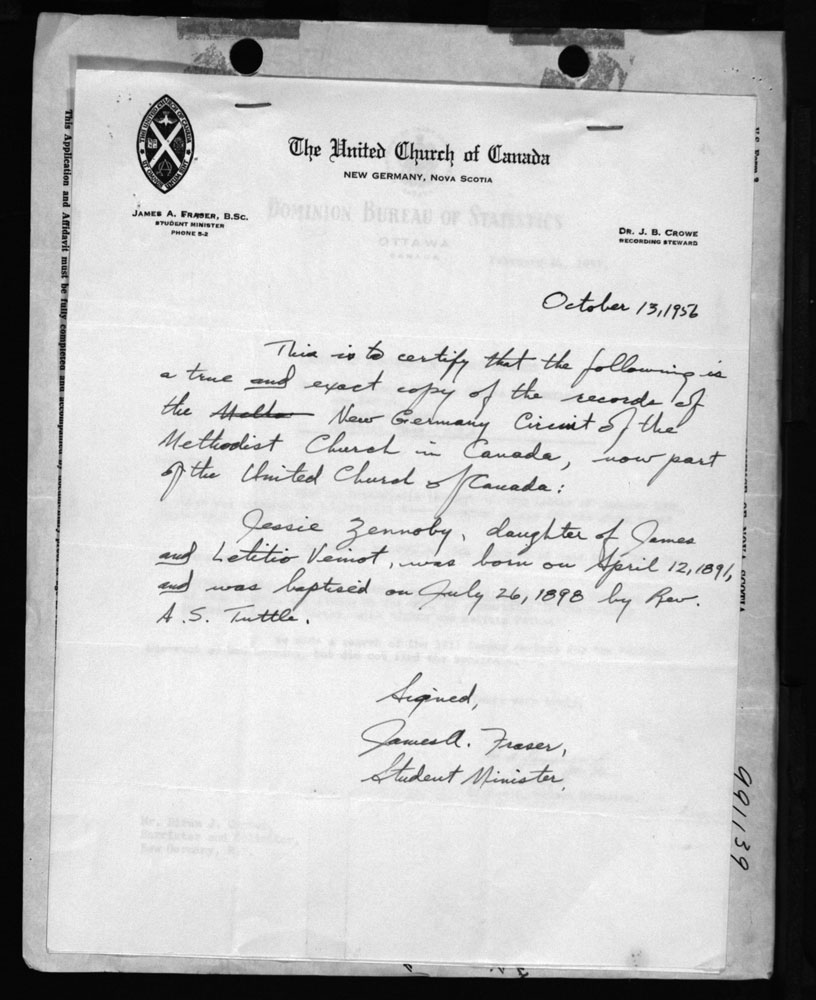 The United Church of Canada
NEW GERMANY, NOVA SCOTIA
JAMES A. FRASER, B.SC.
STUDENT MINISTER
PHONE 5-2
DR. J. B. CROWE
RECORDING STEWARD
DOMINION BUREAU OF STATISTICS
OTTAWA
CANADA
This Application and Affidavit must be fully completed and accompanied
October 13, 1956
This is to certify that the following is
a true and exact copy of the records of
the New Germany Circuit of the
Methodist Church in Canada, now part
of the United Church of Canada:
Jessie Zennoby, daughter of James
and Letitio Veinot, was born on April 12, 1891,
and was baptised on July 26, 1898 by Rev.
A. S. Tuttle.
Signed,
James A. Fraser,
Student Minister.
991139